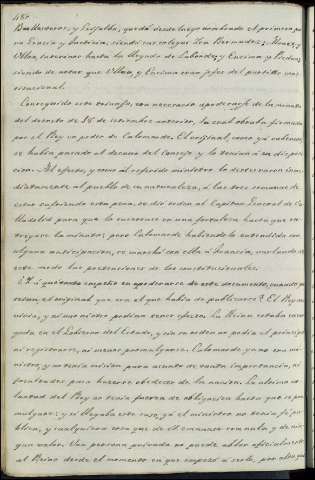 Ballesteros, y Gosfalla, quedó desde luego nombrado el primero pa-
ra Gracia y Justicia, siendo sus colegas Zea Bermudez; Monet, y
Ulloa, interinos hasta la llegada de Laborde, y Encima y Piedra;
siendo de notar que Ulloa, y Encima eran jefes del partido cons-
titucional.
Conseguido este triunfo, era necesario apoderarse de la minuta
del decreto de 18 de setiembre anterior, la cual obraba firmada
por el Rey en poder de Calomarde. El original, como ya sabemos,
se habia pasado al decano del Consejo y lo tenian á su disposi-
cion. Al efecto, y como al referido ministro le desterraron inme-
diatamente al pueblo de su naturaleza, á las tres semanas de
estar sufriendo esta pena, se dió orden al Capitan General de
para que le encerrase en una fortaleza hasta que en-
tregase la minuta; pero Calomarde habiendolo entendido con
alguna anticipacion, se marchó con ella á Francia, burlando de
este modo las pretensiones de los constitucionales.
¿Y á qué tanto empeño en apoderarse de este documento, cuando po-
seian el original que era el que habia de publicarse? El Rey aun
vivia, y ni uno ni otro podian tener efecto. La Reina estaba encar-
gada en el Gobierno del Estado, y sin su orden no podia el principe
ni registrarse, ni menos promulgarse. Calomarde ya no era mi-
nistro, y no tenia mision para asunto de tanta importancia, ni
facultades para hacerse obedecer de la nacion. La ultima vo-
luntad del Rey no tenia fuerza de obligacion hasta que se pro-
mulgase; y si llegaba este caso, ya el ministro no tenia fé pú-
blica, y cualquiera cosa que de él emanase era nula y de nin-
gun valor. Una persona privada no puede hablar oficialmente
al Reino desde el momento en que empezó á serlo, por alto que